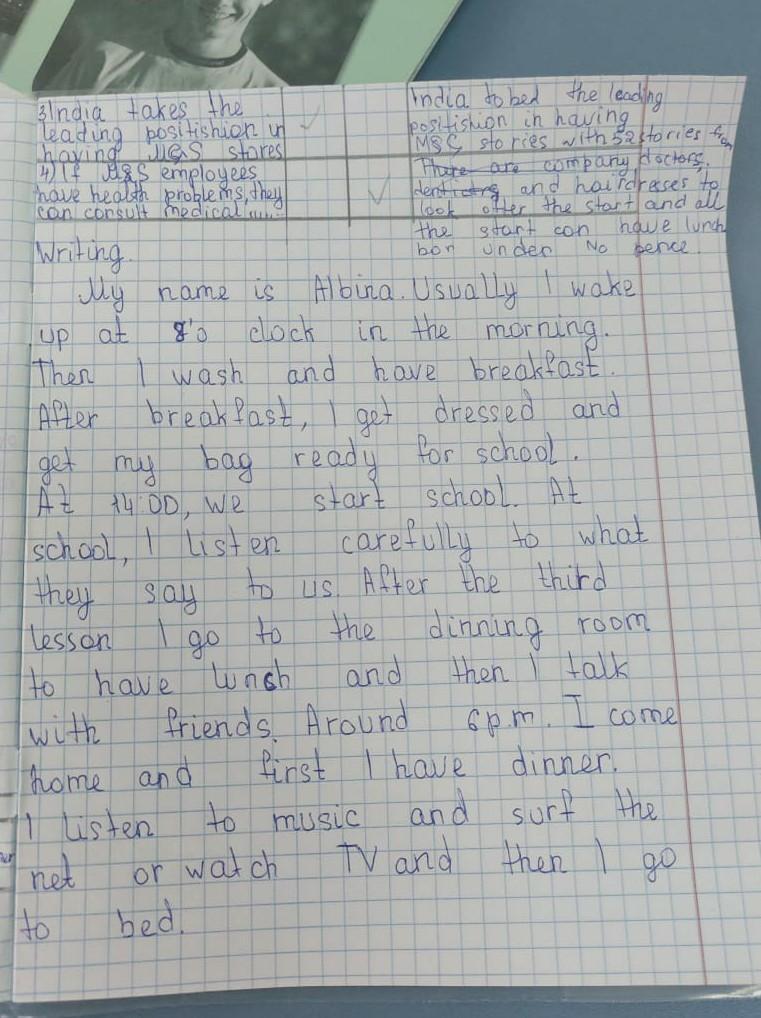 3India takes the
leading positishion in
having M&S stores
4) If M&S employees
have health problems, they
can consult medical......
India to bed the leading
positishion in having
M&C stories with 52 stories from
There are company doctors,
and hairdresses to
look after the start and all
the start can have lunch
bon under No pence.
Writing.
My name is Albina. Usually I wake
up at 8'o clock in the morning.
Then I wash and have breakfast.
After breakfast, I get dressed and
get my bag ready for school.
At 14:00, we start school. At
school, I listen carefully to what
they say to us. After the third
lesson I go to the dinning room
to have lunch and then I talk
with friends. Around 6 p.m. I come
home and first I have dinner.
I listen to music and surf the
net or watch TV and then I go
to bed.